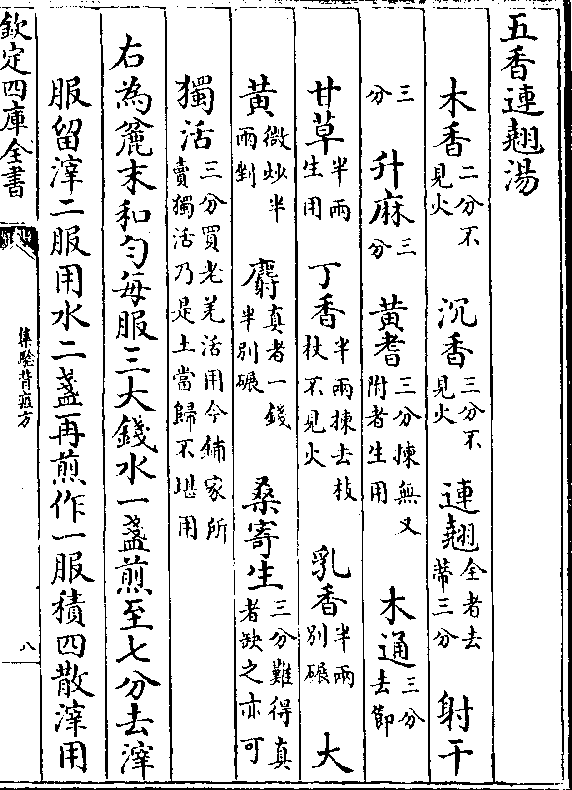 五香連翹湯
木香二分不見火 沉香三分不見火 連翹全者去蒂三分 射干
三分 升麻三分 黄耆三分揀無叉附者生用 木通三分去節
甘草半兩生用 丁香半兩揀去枝杖不見火 乳香半兩别碾 大
黄微炒半兩剉 麝真者一錢半别碾 桑寄生三分難得真者缺之亦可
獨活三分買老羌活用今鋪家所賣獨活乃是土當歸不堪用
右為麄末和勻每服三大錢水一盞煎至七分去滓
服留滓二服用水二盞再煎作一服積四散滓用
欽定四庫全書
集驗背疽方
八